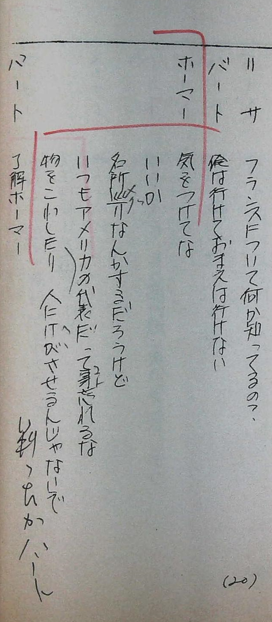 リサ フランスについて何か知ってるの?
バート 俺は行けておまえは行けない
ホーマー 気をつけてな
いいか
名所めぐりなんかするだろうけど
いつもアメリカの代表だって事忘れるな
物をこわしたり 人にけがさせるんじゃないぞ
判ったかバート
バート 了解ホーマー
(20)